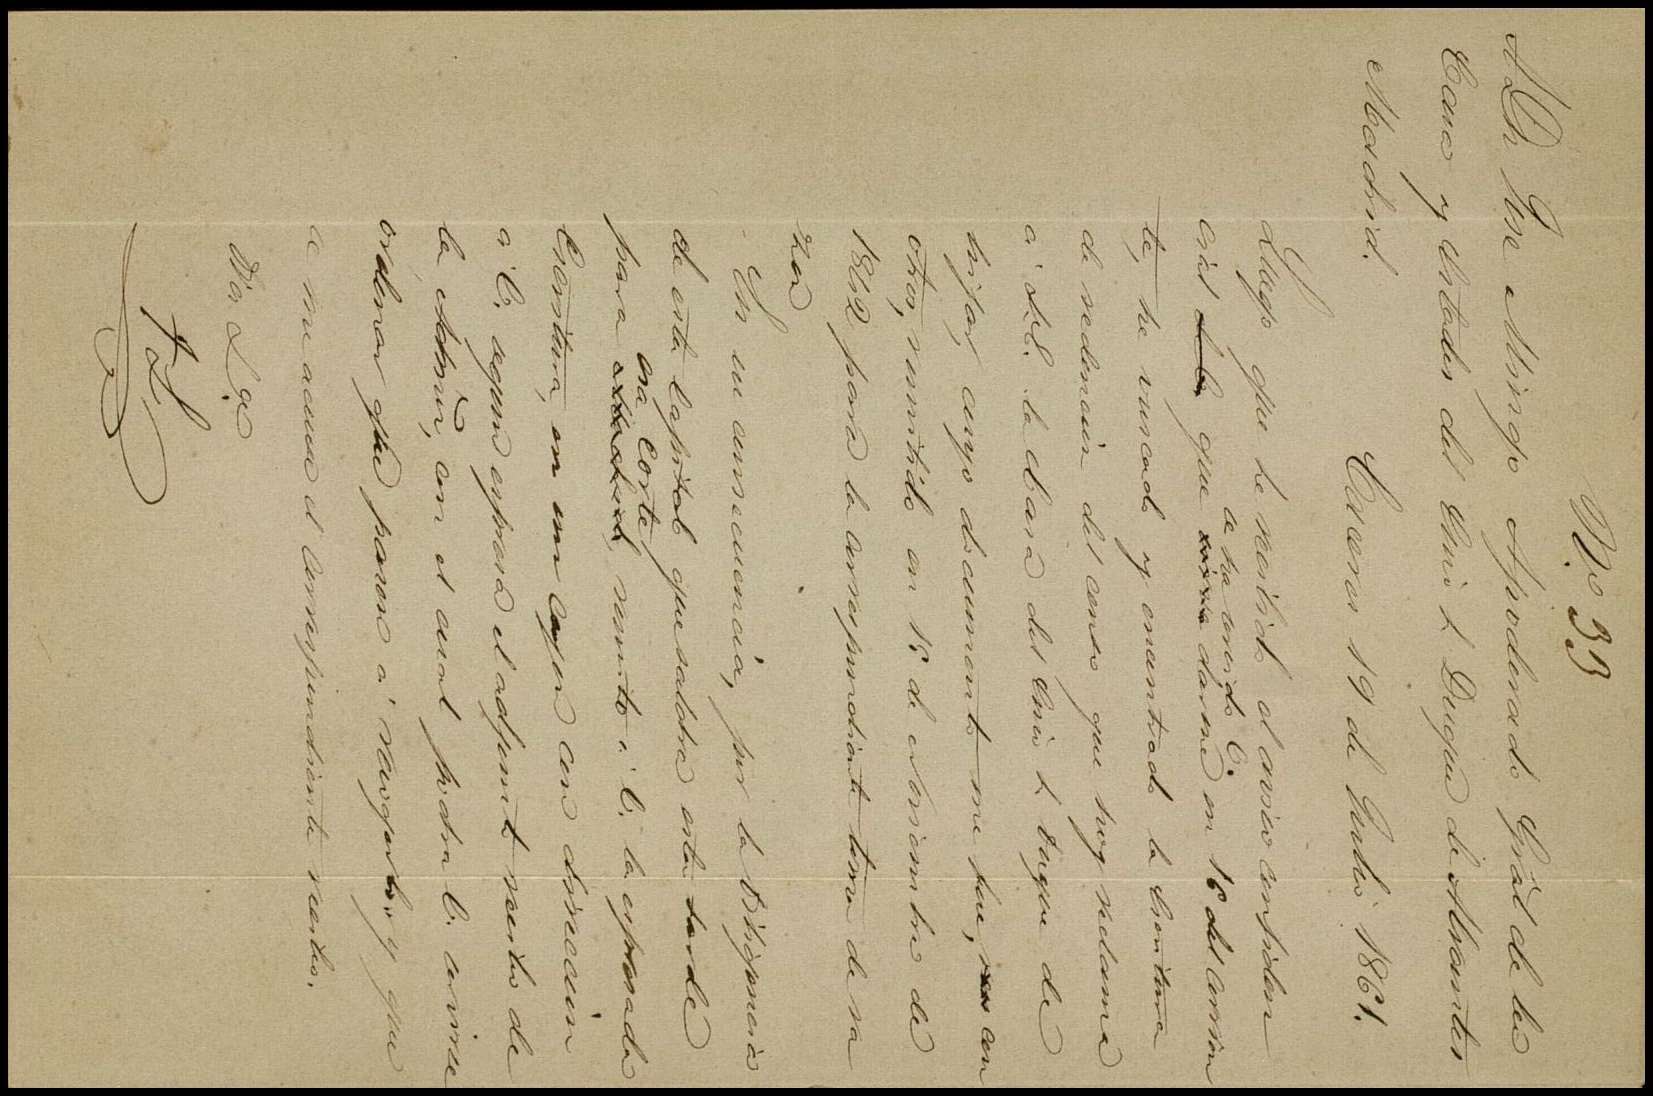 Nº 33
A Dn Jose Mingo Apoderado Gral de la
Casa y Estados del Exmo S. Duque de Abrantes
Madrid.
Caceres 19 de Julio 1861.
Luego que he recibido el aviso confiden
cial que se ha servido V. darme en 16 del corrien
te, he buscado y encontrado la Escritura
de redencion del censo que hoy reclama
á el. la Casa del Exmo S. Duque de
Hijar, cuyo documento me fue, con
otros, remitido en 1º de Noviembre de
1842 para la correspondiente toma de ra
zon
En su consecuencia, por la Diligencia
de esta Capital que saldra esta tarde
para esa Corte, remito á V. la espresada
Escritura, en un Cajon con direccion
á V. segun espresa el adjunto recibo de
la Admon, con el cual podra V. servirse
ordenar que pasen á recogerlo, y que
se me acuse el correspondiente recibo.
D. L. G.